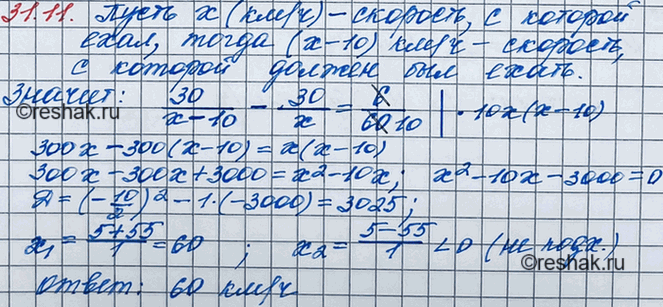 31.11. Пусть x (км/ч) – скорость, с которой
ехал, тогда (x-10) км/ч – скорость,
с которой должен был ехать.
Значит: 30/(x-10) - 30/x = 6/60 10 | · 10x(x-10)
300x - 300(x-10) = x(x-10)
300x - 300x + 3000 = x² - 10x; x² - 10x - 3000 = 0
D = (-10/2)² - 1·(-3000) = 3025;
x₁ = (5+55)/1 = 60 ; x₂ = (5-55)/1 < 0 (не подх.)
Ответ: 60 км/ч
©reshak.ru
©reshak.ru